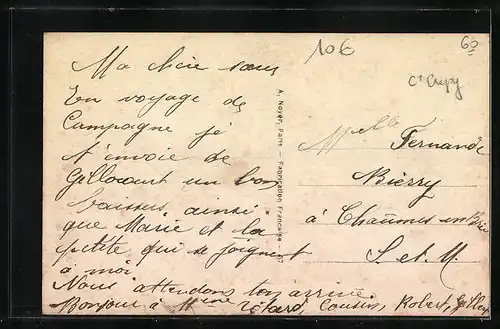 10€
60
Ct Crepy
Ma chère sœur
En voyage de
Campagne je
t'envoie de
Gillocourt un bon
baisers, ainsi
que Marie et la
petite qui se joignent
à moi.
Nous attendons ton arrivée
Bonjour à Mme Cousin, Robert,
A. Noyer, Paris — Fabrication Française
Melle Fernande
Bierry
à Chaumes en Brie
S. et M.